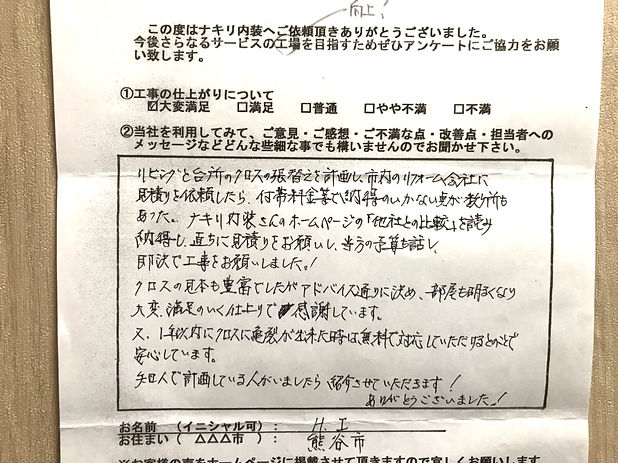 向上!
この度はナキリ内装へご依頼頂きありがとうございました。
今後さらなるサービスの工場を目指すためぜひアンケートにご協力をお願
い致します。
①工事の仕上がりについて
☑大変満足 □満足 □普通 □やや不満 □不満
②当社を利用してみて、ご意見・ご感想・ご不満な点・改善点・担当者への
メッセージなどどんな些細な事でも構いませんのでお聞かせ下さい。
リビングと台所のクロスの張替えを計画し、市内のリフォーム会社に
見積りを依頼したら、付帯料金等で納得のいかない点が数ヶ所も
あった。ナキリ内装さんのホームページの「他社との比較」を読み
納得し、直ちに見積りをお願いし、当方の予算も話し、
即決で工事をお願いしました。!
クロスの見本も豊富でしたがアドバイス通りに決め、部屋も明るくなり
大変、満足のいく仕上りで感謝しています。
又、1年以内にクロスに亀裂が出来た時は無料で対応していただけるとのことで
安心しています。
知人で計画している人がいましたら紹介させていただきます!
ありがとうございました!
お名前 (イニシャル可): H.I
お住まい( △△△市 ): 熊谷市
※お客様の声をホームページに掲載させて頂きますので宜しくお願いします